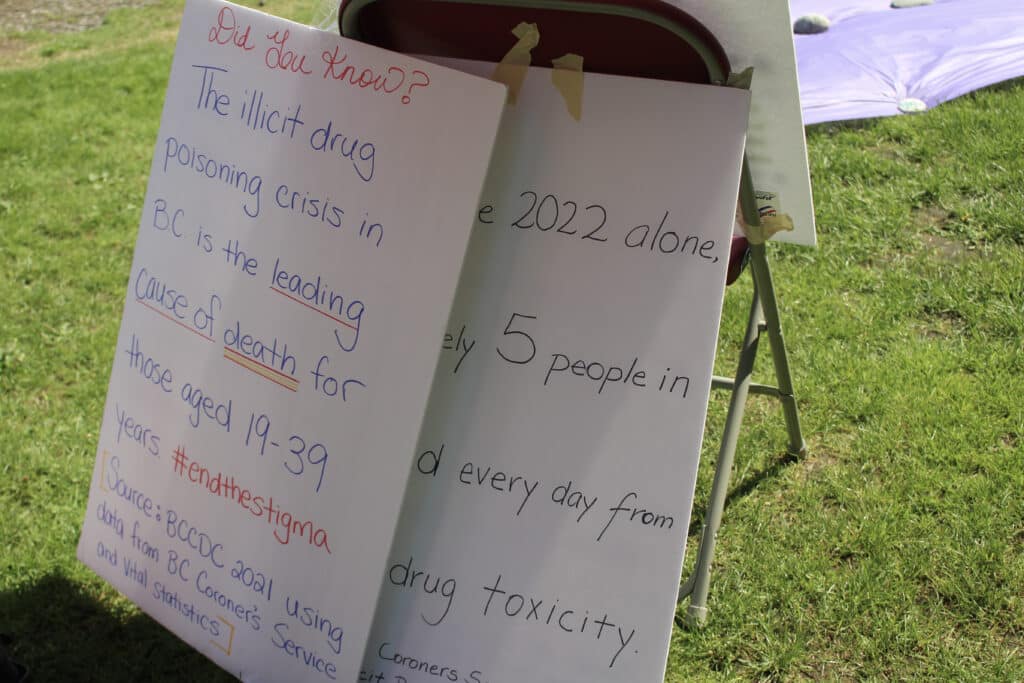 Did You Know?
The illicit drug
poisoning crisis in
BC is the leading
cause of death for
those aged 19-39
years #endthestigma
[Source: BCCDC 2021 using
data from BC Coroner's Service
and Vital Statistics]
e 2022 alone,
ely 5 people in
d every day from
drug toxicity.
Coroners S